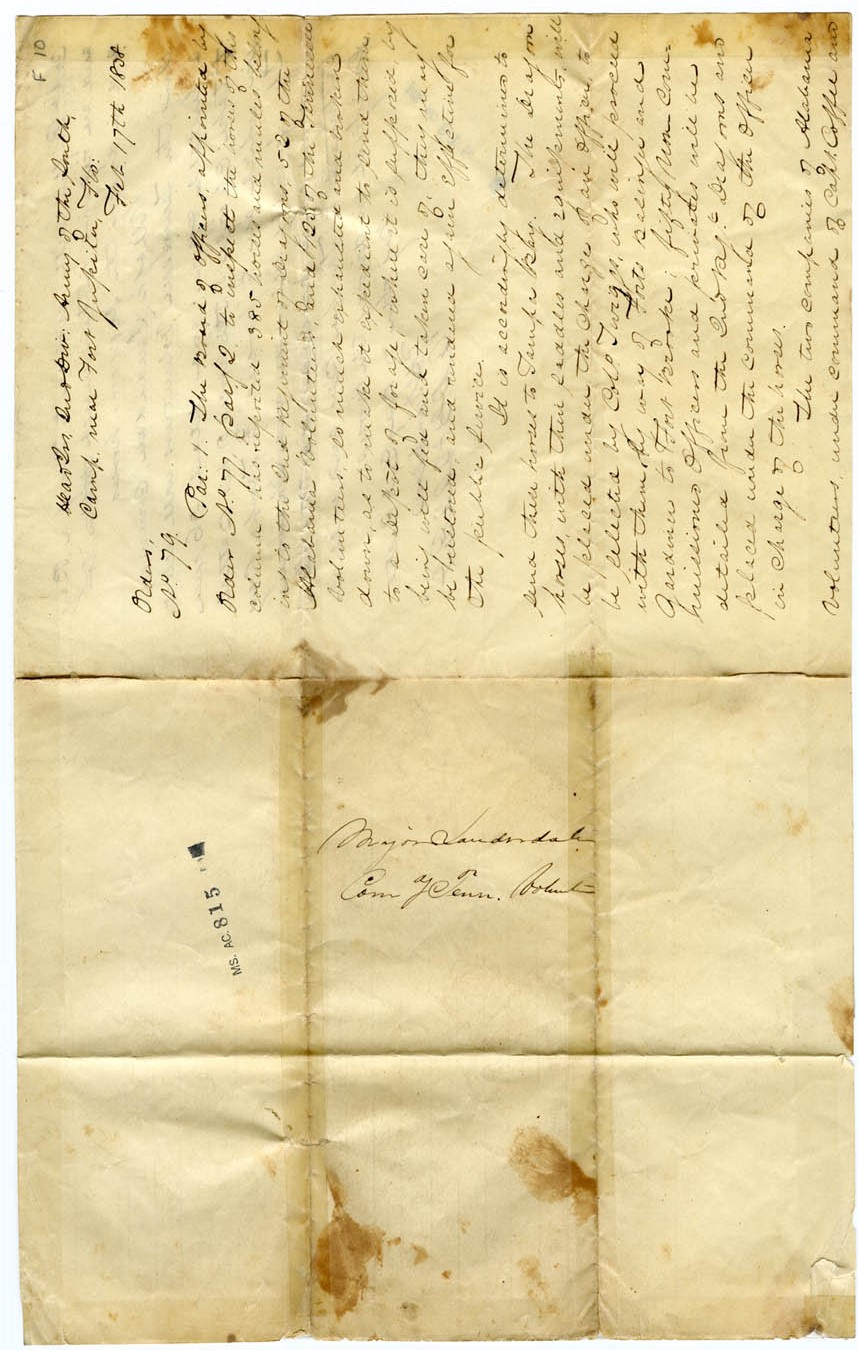 F 10
Head Qrs. 2nd Div: Army of the South,
Camp near Fort Jupiter, Flo:
Feb 17th 1838
Orders,
No 79
Par: 1. The Board of Officers, appointed by
Order No 77 Par: 2 to inspect the horses of this
column has reported 385 horses and mules belong
ing to the 2nd Regiment of Dragoons, 52 of the
Alabama Volunteers, and 120 of the Tennessee
Volunteers, so much exhausted and broken
down, as to make it expedient to send them
to a depot of forage, where it is supposed, by
being well fed and taken care of, they may
be restored, and rendered again effective for
the public service.
It is accordingly determined to
send these horses to Tampa Bay. The Dragoon
horses, with their saddles and equipments, will
be placed under the charge of an Officer, to
be selected by Col. Twiggs, who will proceed
with them, by way of Forts Basinger and
Gardner to Fort Brooke; fifty Non Com-
missioned Officers and privates will be
detailed from the 2nd Reg. Dragoons and
placed under the command of the Officer
in charge of the horses.
The two companies of Alabama
Volunteers, under command of Capt Coffee and
Major Lauderdale
Com of Tenn. Volunt
MS. AC. 815